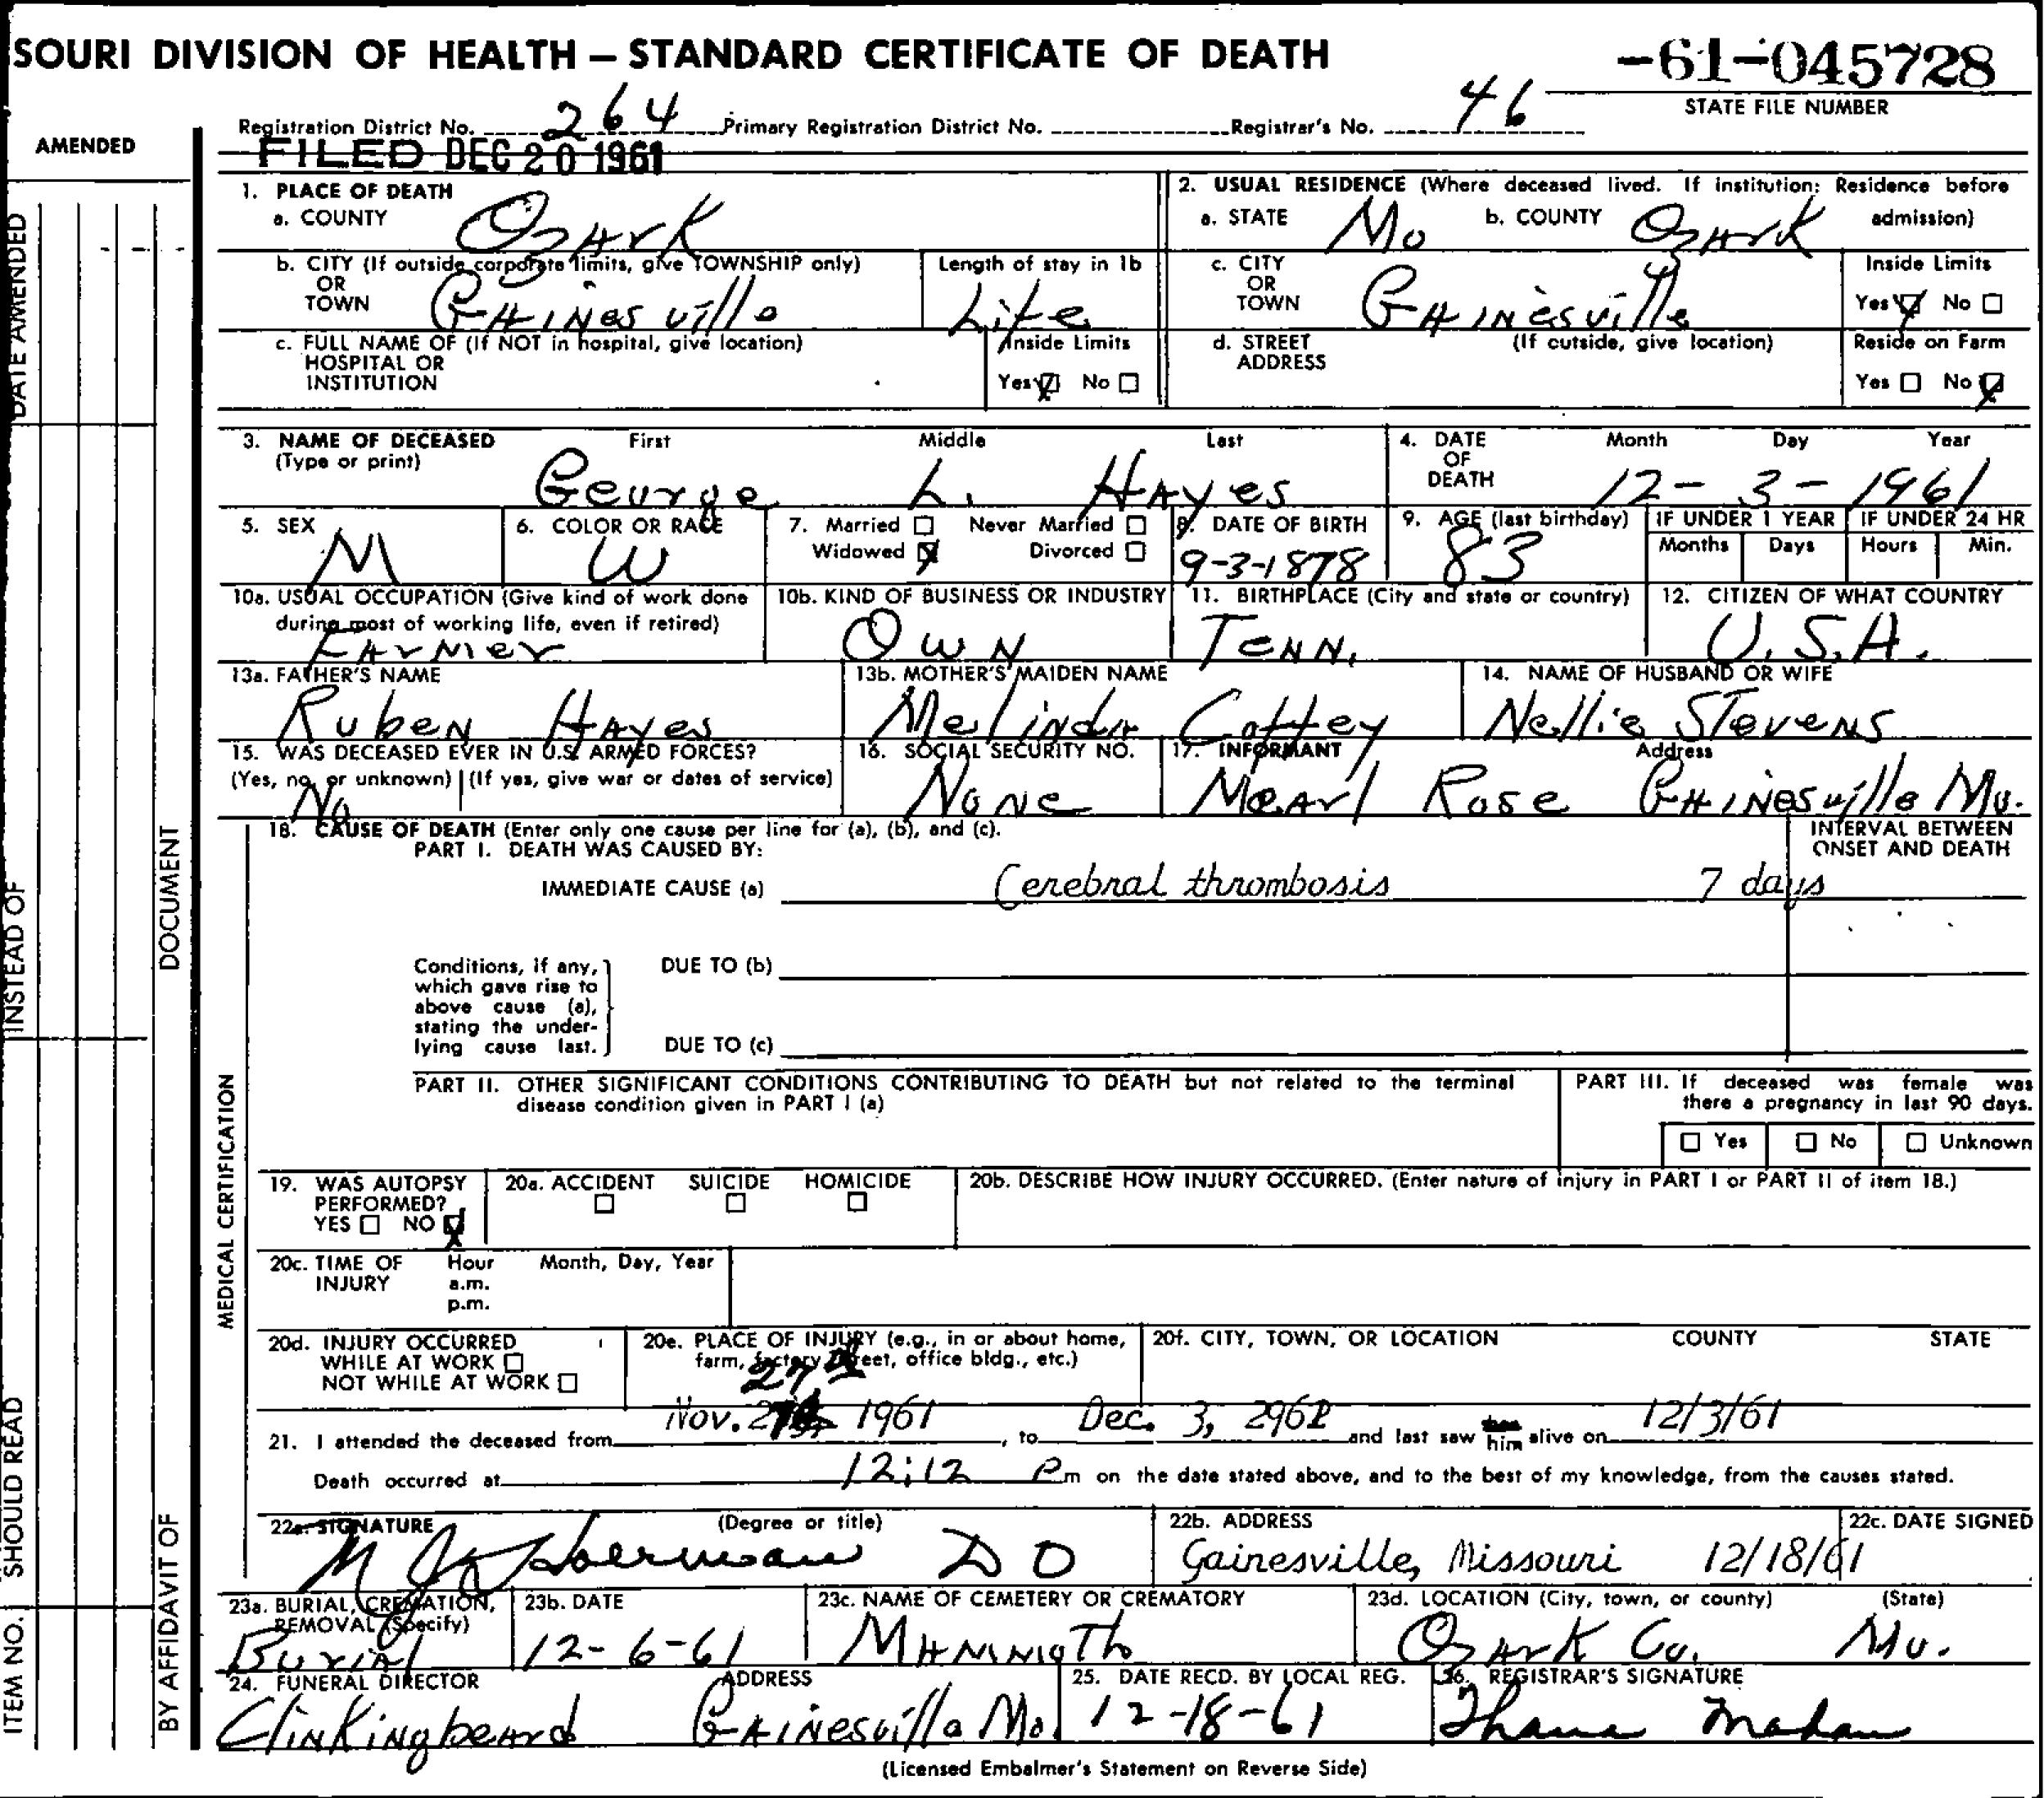 SOURI DIVISION OF HEALTH — STANDARD CERTIFICATE OF DEATH
-61-045728
STATE FILE NUMBER
Registration District No. 264 Primary Registration District No. Registrar's No. 46
FILED DEC 20 1961
AMENDED
DATE AMENDED
INSTEAD OF
DOCUMENT
SHOULD READ
ITEM NO.
BY AFFIDAVIT OF
1. PLACE OF DEATH
a. COUNTY Ozark
2. USUAL RESIDENCE (Where deceased lived. If institution: Residence before admission)
a. STATE Mo b. COUNTY Ozark
b. CITY (If outside corporate limits, give TOWNSHIP only) OR TOWN Gainesville
Length of stay in 1b Life
c. CITY OR TOWN Gainesville
Inside Limits
Yes No
c. FULL NAME OF (If NOT in hospital, give location) HOSPITAL OR INSTITUTION
Inside Limits
Yes No
d. STREET ADDRESS (If outside, give location)
Reside on Farm
Yes No
3. NAME OF DECEASED (Type or print) First Middle Last
George L. Hayes
4. DATE OF DEATH Month Day Year
12-3-1961
5. SEX M
6. COLOR OR RACE W
7. Married Never Married
Widowed Divorced
8. DATE OF BIRTH
9-3-1878
9. AGE (last birthday) 83
IF UNDER 1 YEAR IF UNDER 24 HR
Months Days Hours Min.
10a. USUAL OCCUPATION (Give kind of work done during most of working life, even if retired)
Farmer
10b. KIND OF BUSINESS OR INDUSTRY
Own
11. BIRTHPLACE (City and state or country)
Tenn.
12. CITIZEN OF WHAT COUNTRY
U.S.A.
13a. FATHER'S NAME
Ruben Hayes
13b. MOTHER'S MAIDEN NAME
Melinda Coffey
14. NAME OF HUSBAND OR WIFE
Nellie Stevens
15. WAS DECEASED EVER IN U.S. ARMED FORCES?
(Yes, no, or unknown) (If yes, give war or dates of service)
No
16. SOCIAL SECURITY NO.
None
17. INFORMANT Address
Mearl Rose Gainesville Mo.
MEDICAL CERTIFICATION
18. CAUSE OF DEATH (Enter only one cause per line for (a), (b), and (c).
PART I. DEATH WAS CAUSED BY:
INTERVAL BETWEEN ONSET AND DEATH
IMMEDIATE CAUSE (a) Cerebral thrombosis 7 days
Conditions, if any, which gave rise to above cause (a), stating the underlying cause last.
DUE TO (b)
DUE TO (c)
PART II. OTHER SIGNIFICANT CONDITIONS CONTRIBUTING TO DEATH but not related to the terminal disease condition given in PART I (a)
PART III. If deceased was female was there a pregnancy in last 90 days.
Yes No Unknown
19. WAS AUTOPSY PERFORMED?
YES NO
20a. ACCIDENT SUICIDE HOMICIDE
20b. DESCRIBE HOW INJURY OCCURRED. (Enter nature of injury in PART I or PART II of item 18.)
20c. TIME OF INJURY Hour a.m. p.m. Month, Day, Year
20d. INJURY OCCURRED
WHILE AT WORK
NOT WHILE AT WORK
20e. PLACE OF INJURY (e.g., in or about home, farm, factory, street, office bldg., etc.)
20f. CITY, TOWN, OR LOCATION COUNTY STATE
27
21. I attended the deceased from Nov. 1961, to Dec. 3, 2962 and last saw him alive on 12/3/61
Death occurred at 12:12 Pm on the date stated above, and to the best of my knowledge, from the causes stated.
22a. SIGNATURE (Degree or title)
M J Hoerman D O
22b. ADDRESS
Gainesville, Missouri
22c. DATE SIGNED
12/18/61
23a. BURIAL, CREMATION, REMOVAL (Specify)
Burial
23b. DATE
12-6-61
23c. NAME OF CEMETERY OR CREMATORY
Mammoth
23d. LOCATION (City, town, or county) (State)
Ozark Co. Mo.
24. FUNERAL DIRECTOR ADDRESS
Clinkingbeard Gainesville Mo.
25. DATE RECD. BY LOCAL REG.
12-18-61
26. REGISTRAR'S SIGNATURE
Mahan
(Licensed Embalmer's Statement on Reverse Side)